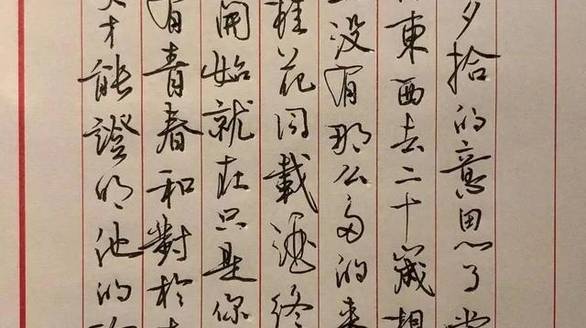 夕拾的意思了当
東西去二十歲想
没有那么多的来
桂花同載酒终
開始就在只是你
有青春和對於
才能證明他的